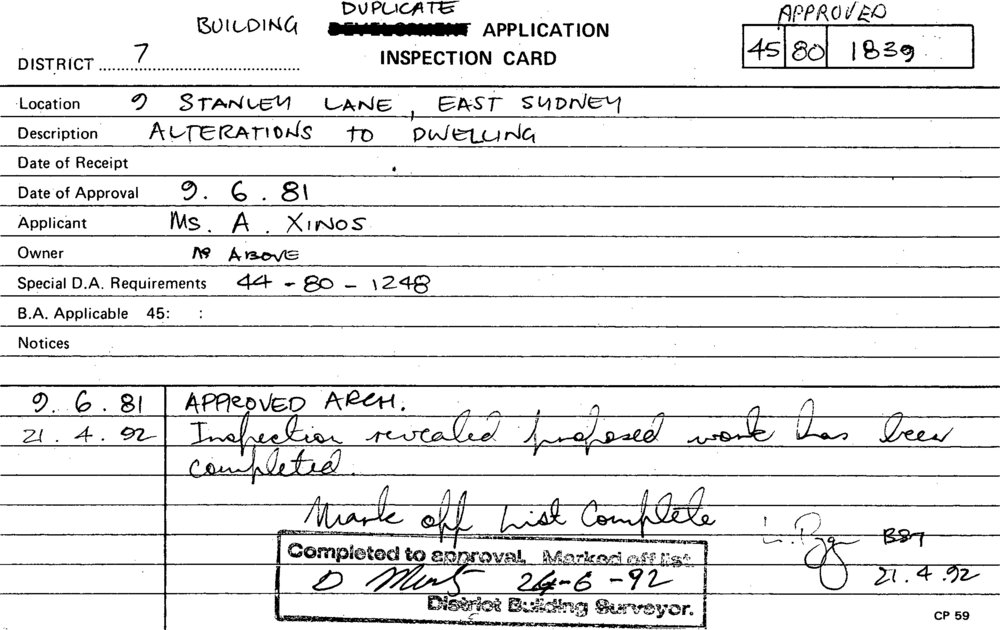 DUPLICATE
BUILDING DEVELOPMENT APPLICATION
INSPECTION CARD
APPROVED
45 80 1839
DISTRICT 7
Location 9 STANLEY LANE, EAST SYDNEY
Description ALTERATIONS TO DWELLING
Date of Receipt
Date of Approval 9. 6. 81
Applicant Ms. A. XINOS
Owner AS ABOVE
Special D.A. Requirements 44 - 80 - 1248
B.A. Applicable 45: :
Notices
9. 6. 81 APPROVED ARCH.
21. 4. 92 Inspection revealed proposed work has been
completed.
Mark off List Complete
BS7
21.4.92
Completed to approval, Marked off list
D 24-6-92
District Building Surveyor.
CP 59